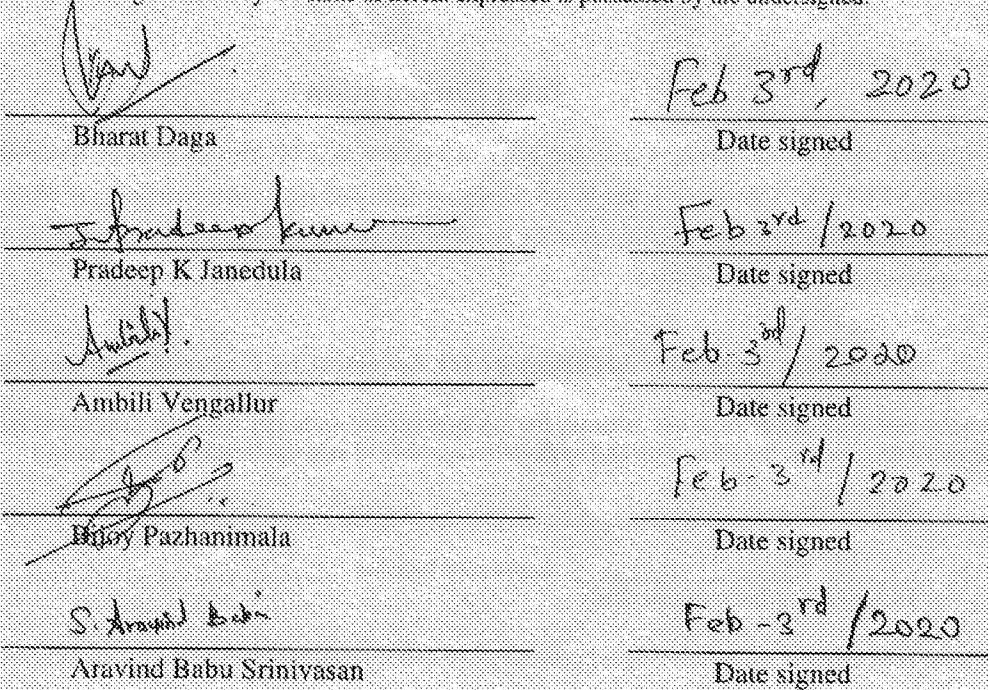 is hereat expressed is possessed by the undersigned.
Feb 3rd, 2020
Bharat Daga Date signed
J. Pradeep kumar Feb 3rd / 2020
Pradeep K Janedula Date signed
Ambili V. Feb - 3rd / 2020
Ambili Vengallur Date signed
Feb - 3rd / 2020
Binoy Pazhanimala Date signed
S. Aravind Babu Feb - 3rd / 2020
Aravind Babu Srinivasan Date signed